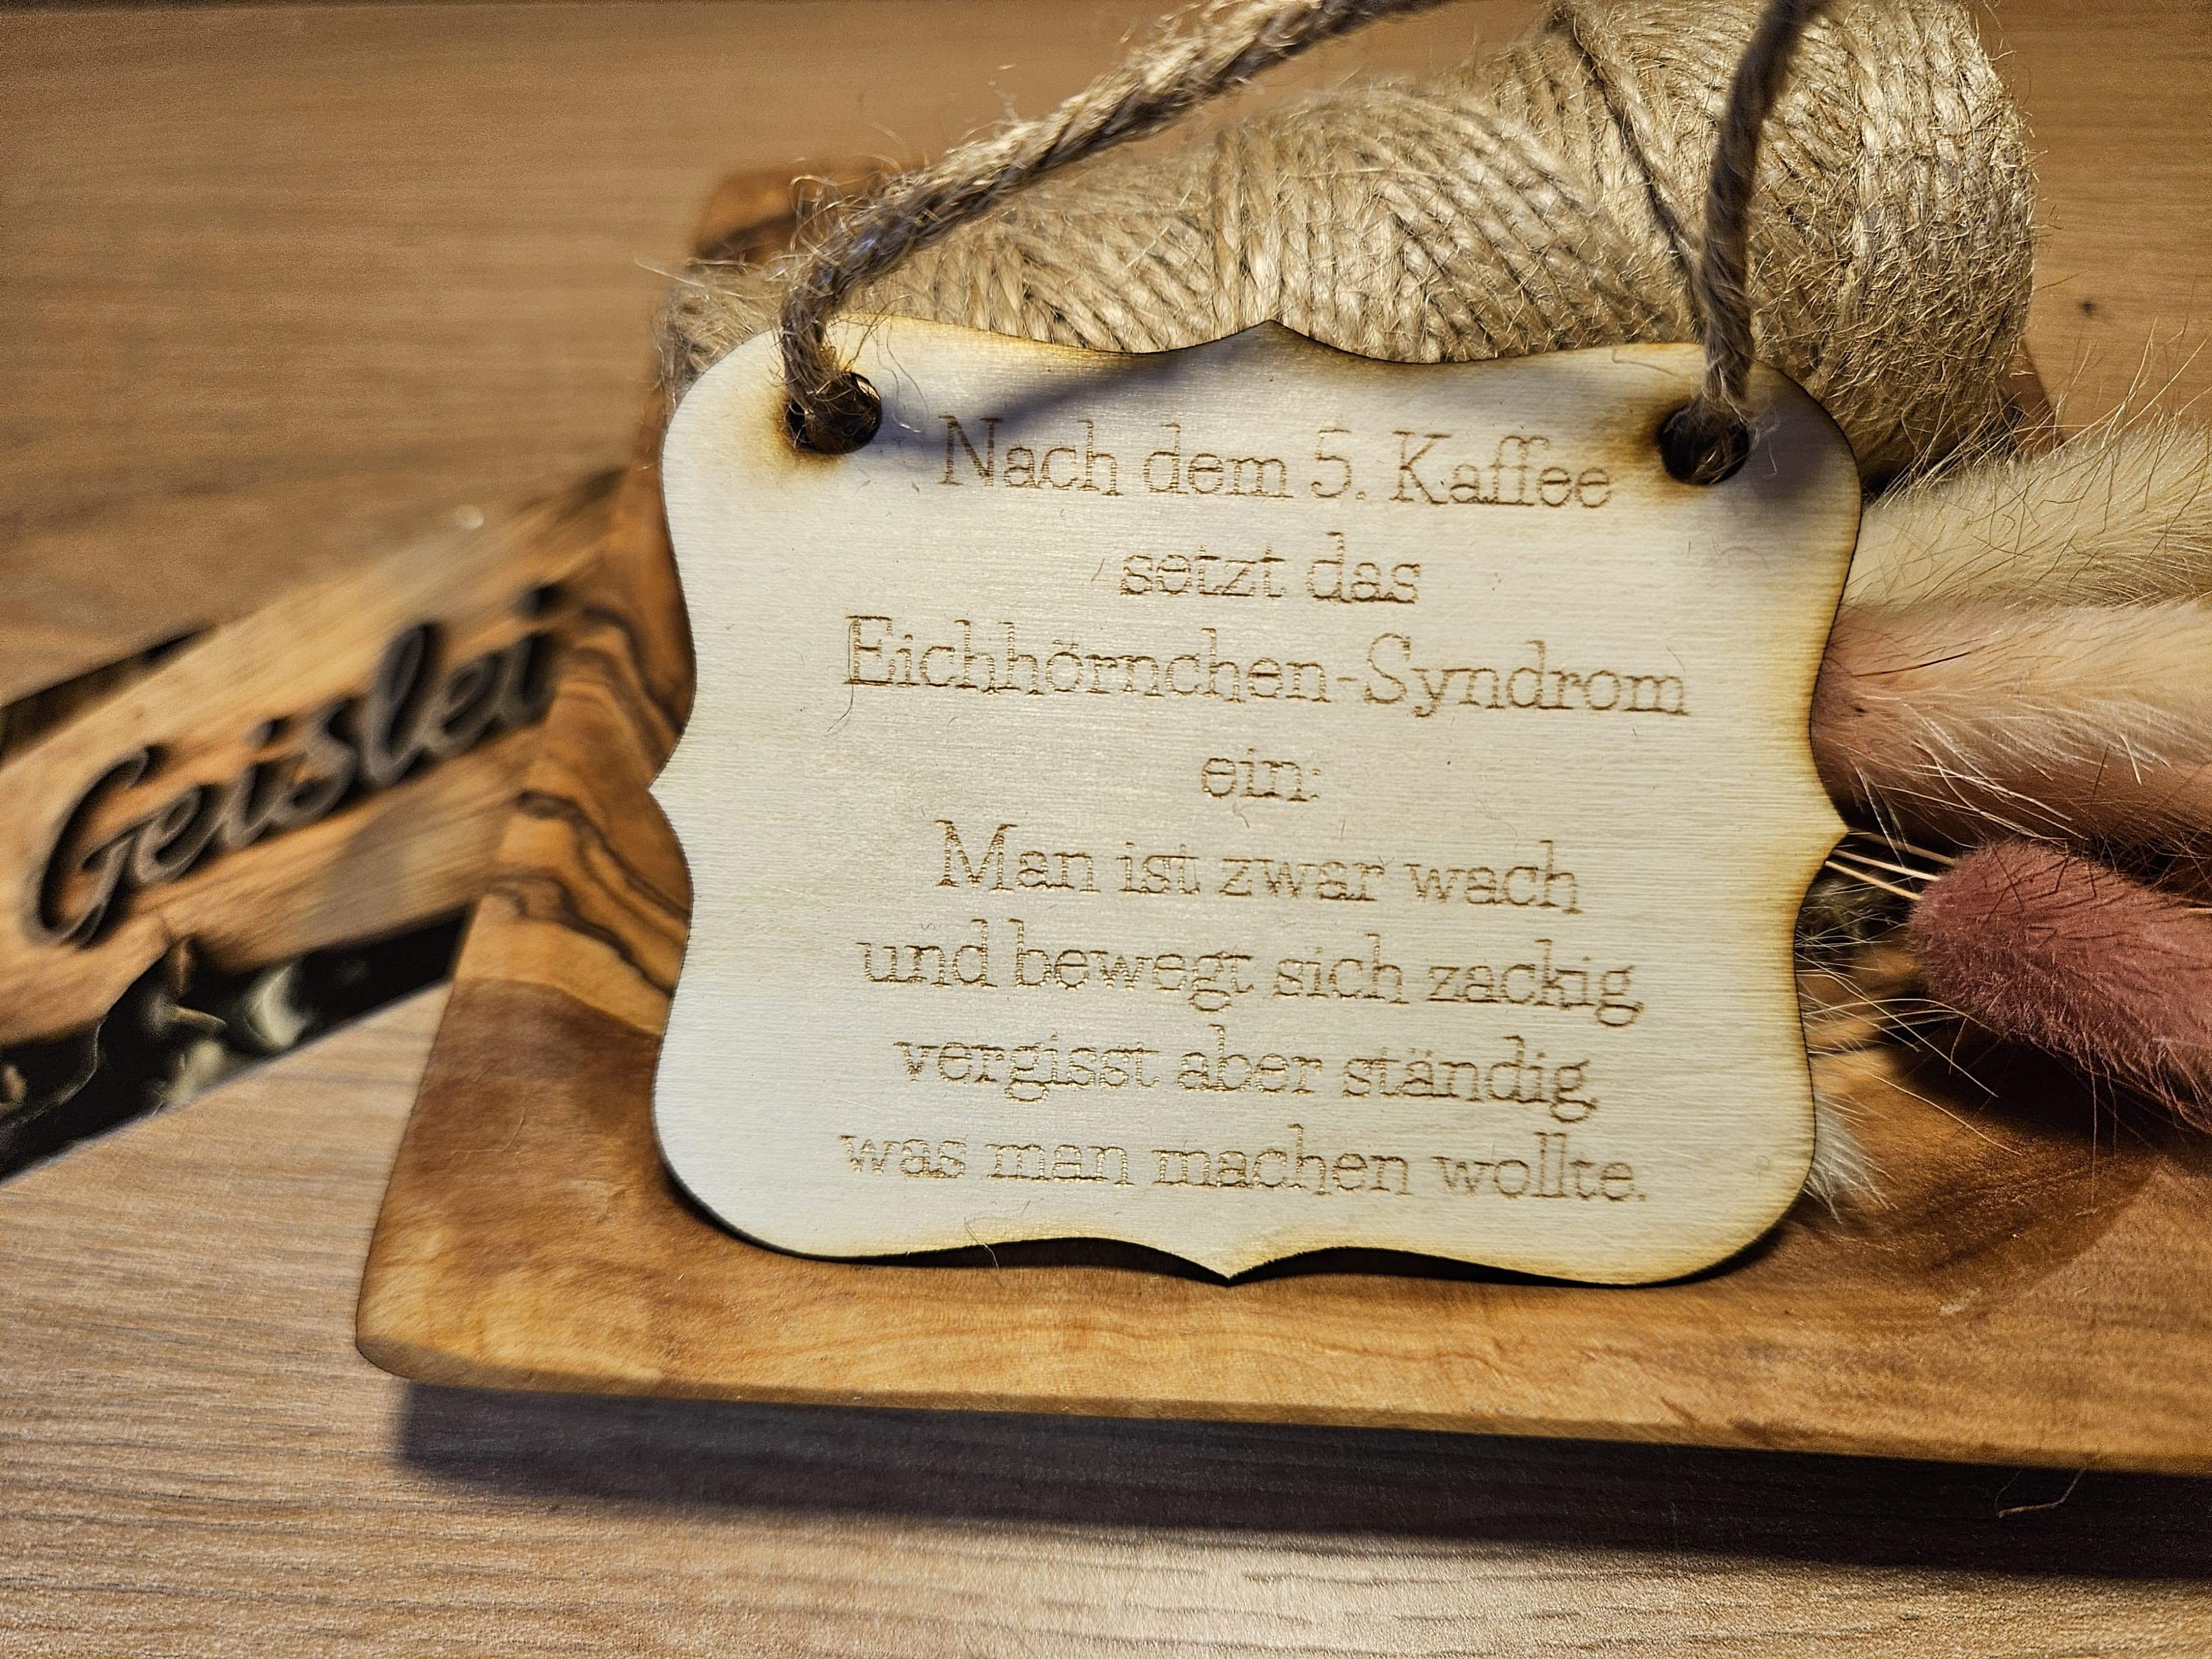 Nach dem 5. Kaffee
setzt das
Eichhörnchen-Syndrom
ein:
Man ist zwar wach
und bewegt sich zackig,
vergisst aber ständig,
was man machen wollte.
Geislei